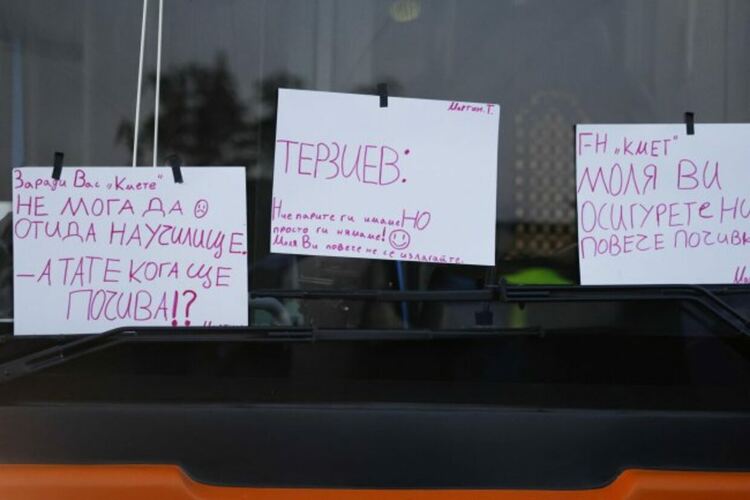 Заради Вас „Кмете"
НЕ МОГА ДА
ОТИДА НА УЧИЛИЩЕ.
– А ТАТЕ КОГА ЩЕ
ПОЧИВА!?
Мартин. Т.
ТЕРЗИЕВ:
Ние парите ги имаме НО
просто ги нямаме!
Моля Ви повече не се излагайте.
Г-Н „КМЕТ"
МОЛЯ ВИ
ОСИГУРЕТЕ
ПОВЕЧЕ ПОЧИВК